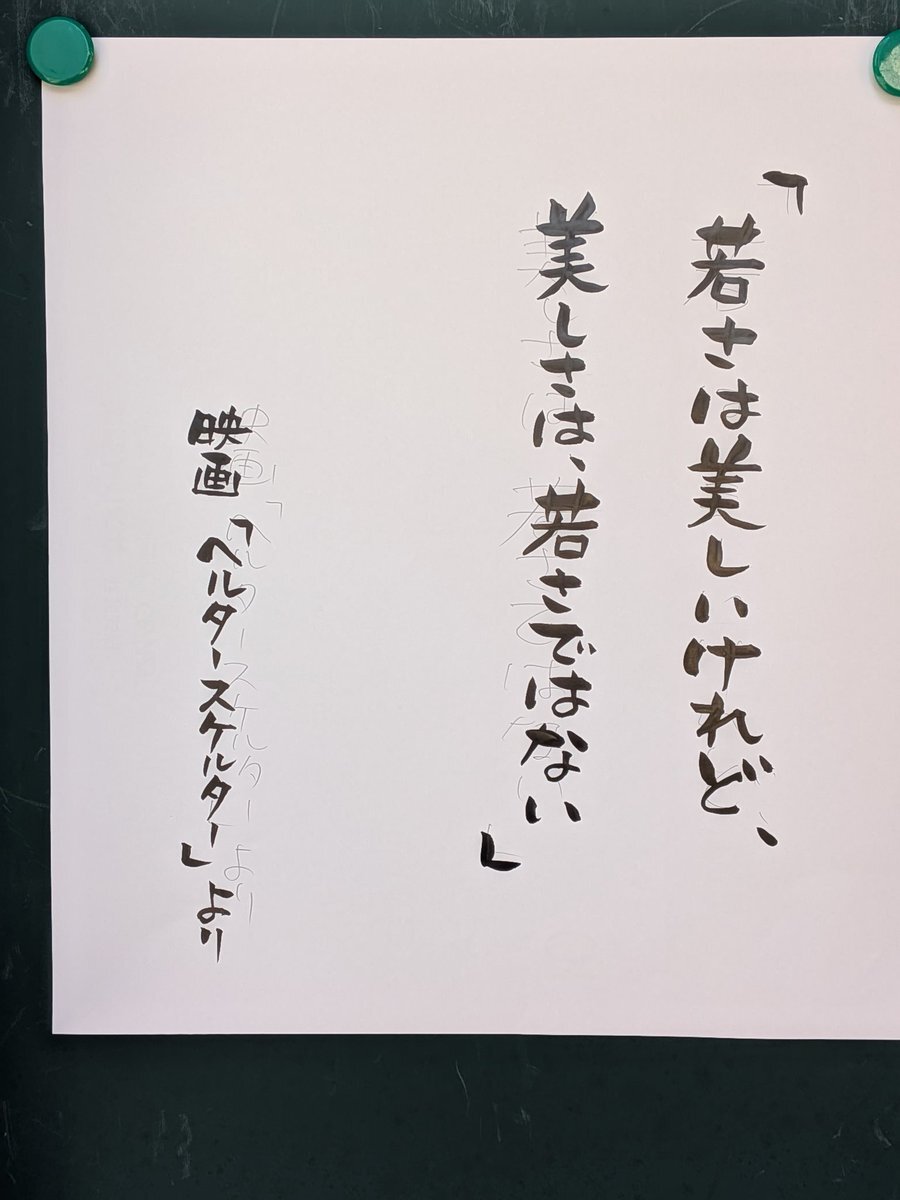 「若さは美しいけれど、
美しさは、若さではない」
映画「ヘルタースケルター」より